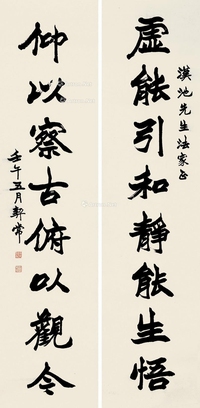 漢池先生法家正
虛能引和靜能生悟
仰以察古俯以觀今
壬午五月